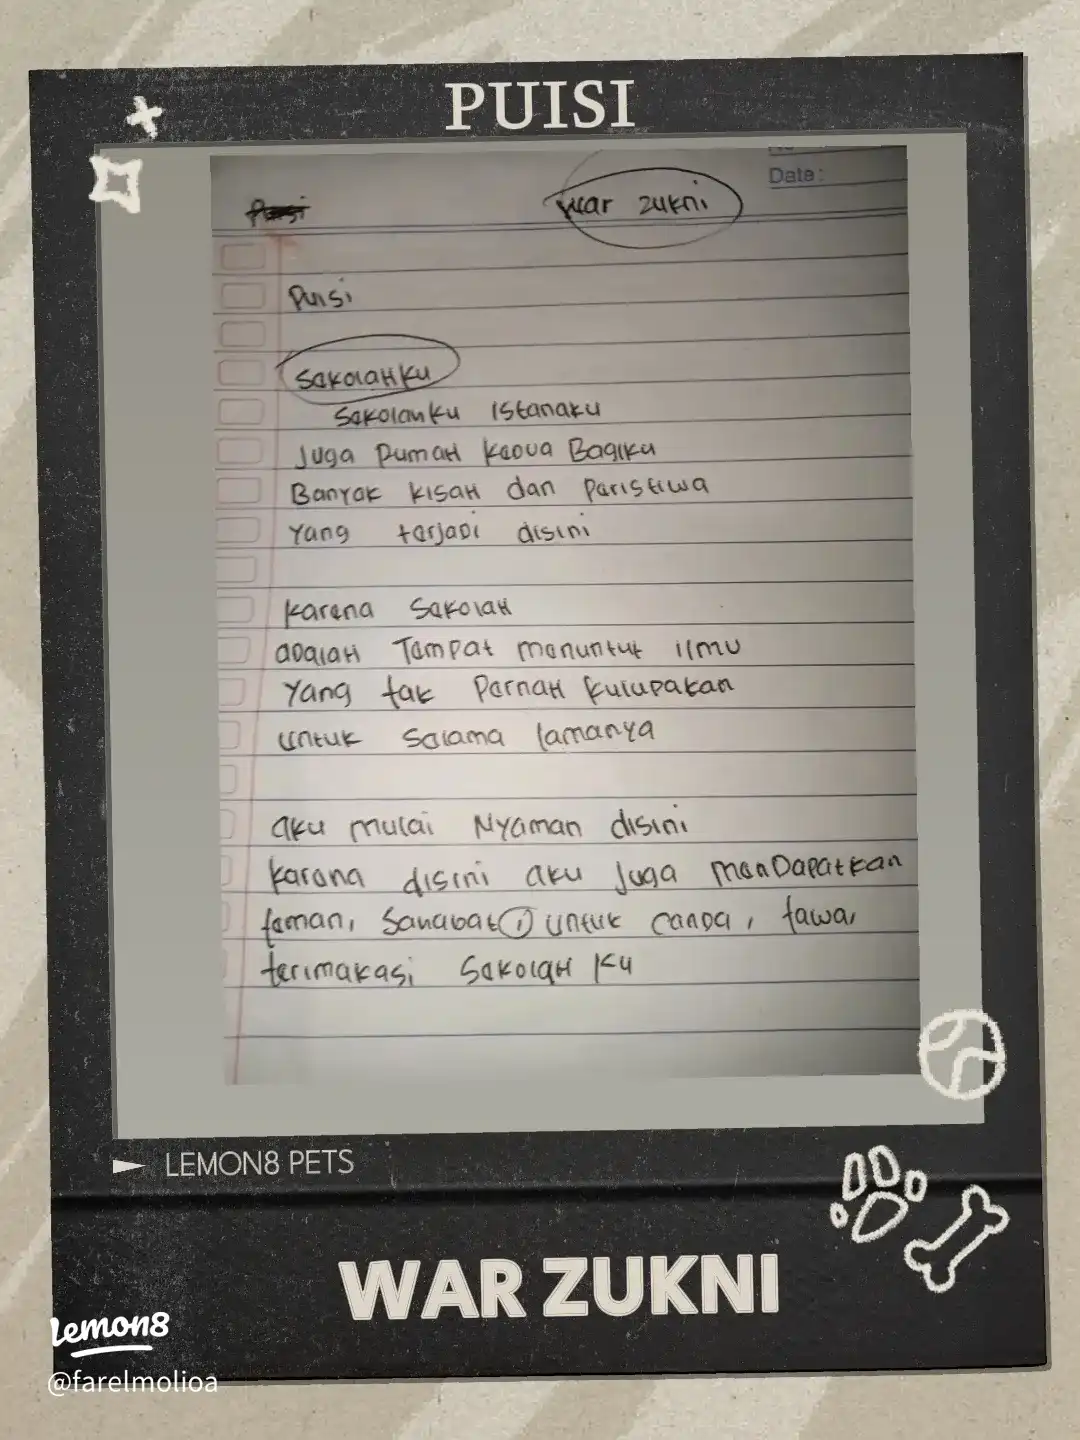 PUISI
War zukni
Date:
Puisi
Sakolahku
Sakolahku istanaku
Juga Rumah kedua Bagiku
Banyak kisah dan Paristiwa
Yang tarjadi disini
karana Sakolah
adalah Tampat manuntut ilmu
Yang tak Parnah kulupakan
untuk Salama lamanya
aku mulai Nyaman disini
karana disini aku Juga manDapatkan
taman, Sahabat, untuk canda, tawa,
tarimakasi Sakolah Ku
LEMON8 PETS
WAR ZUKNI
Lemon8
@farelmolioa